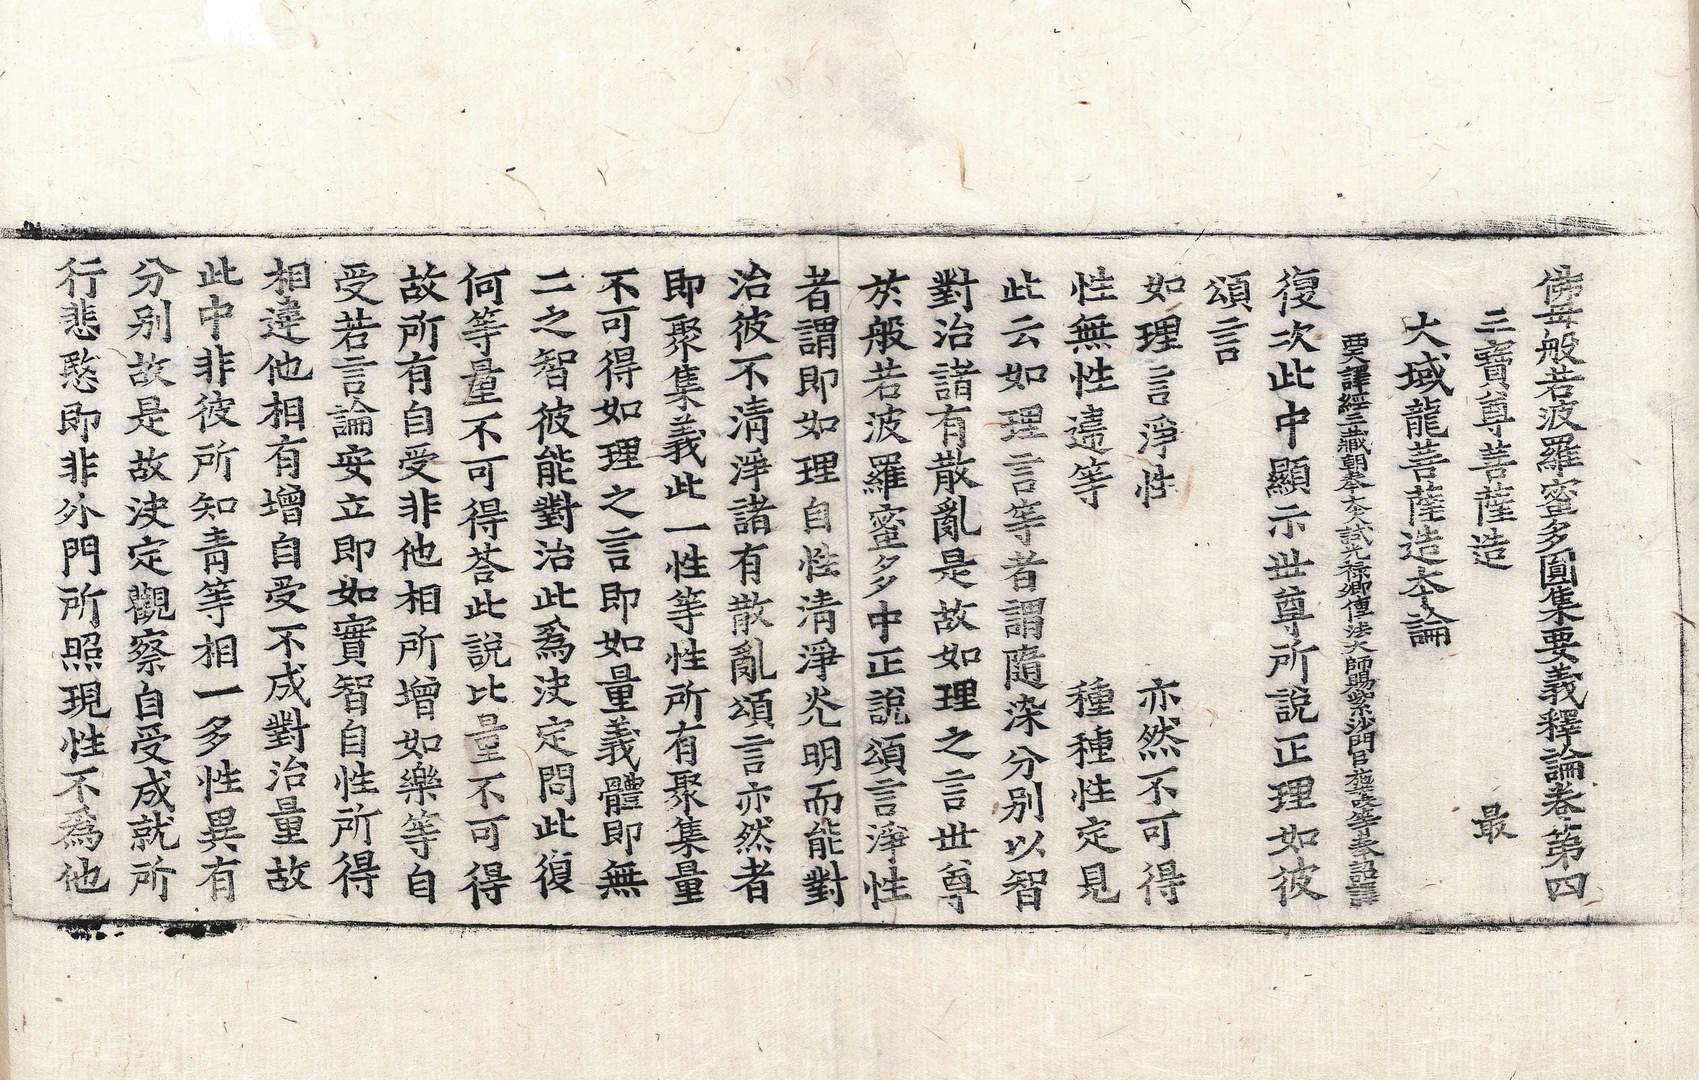 佛母般若波羅蜜多圓集要義釋論卷第四
三寶尊菩薩造 最
大域龍菩薩造本論
西天譯經三藏朝奉大夫試光祿卿傳法大師賜紫沙門臣施護等奉詔譯
復次此中顯示世尊所說正理如彼
頌言
如理言淨性 亦然不可得
性無性違等 種種性定見
此云如理言等者謂隨染分別以智
對治諸有散亂是故如理之言世尊
於般若波羅蜜多中正說頌言淨性
者謂即如理自性清淨光明而能對
治彼不清淨諸有散亂頌言亦然者
即聚集義此一性等性所有聚集量
不可得如理之言即如量義體即無
二之智彼能對治此為決定問此復
何等量不可得荅此說比量不可得
故所有自受非他相所增如樂等自
受若言論安立即如實智自性所得
相違他相有增自受不成對治量故
此中非彼所知青等相一多性異有
分別故是故決定觀察自受成就所
行悲愍即非外門所照現性不為他